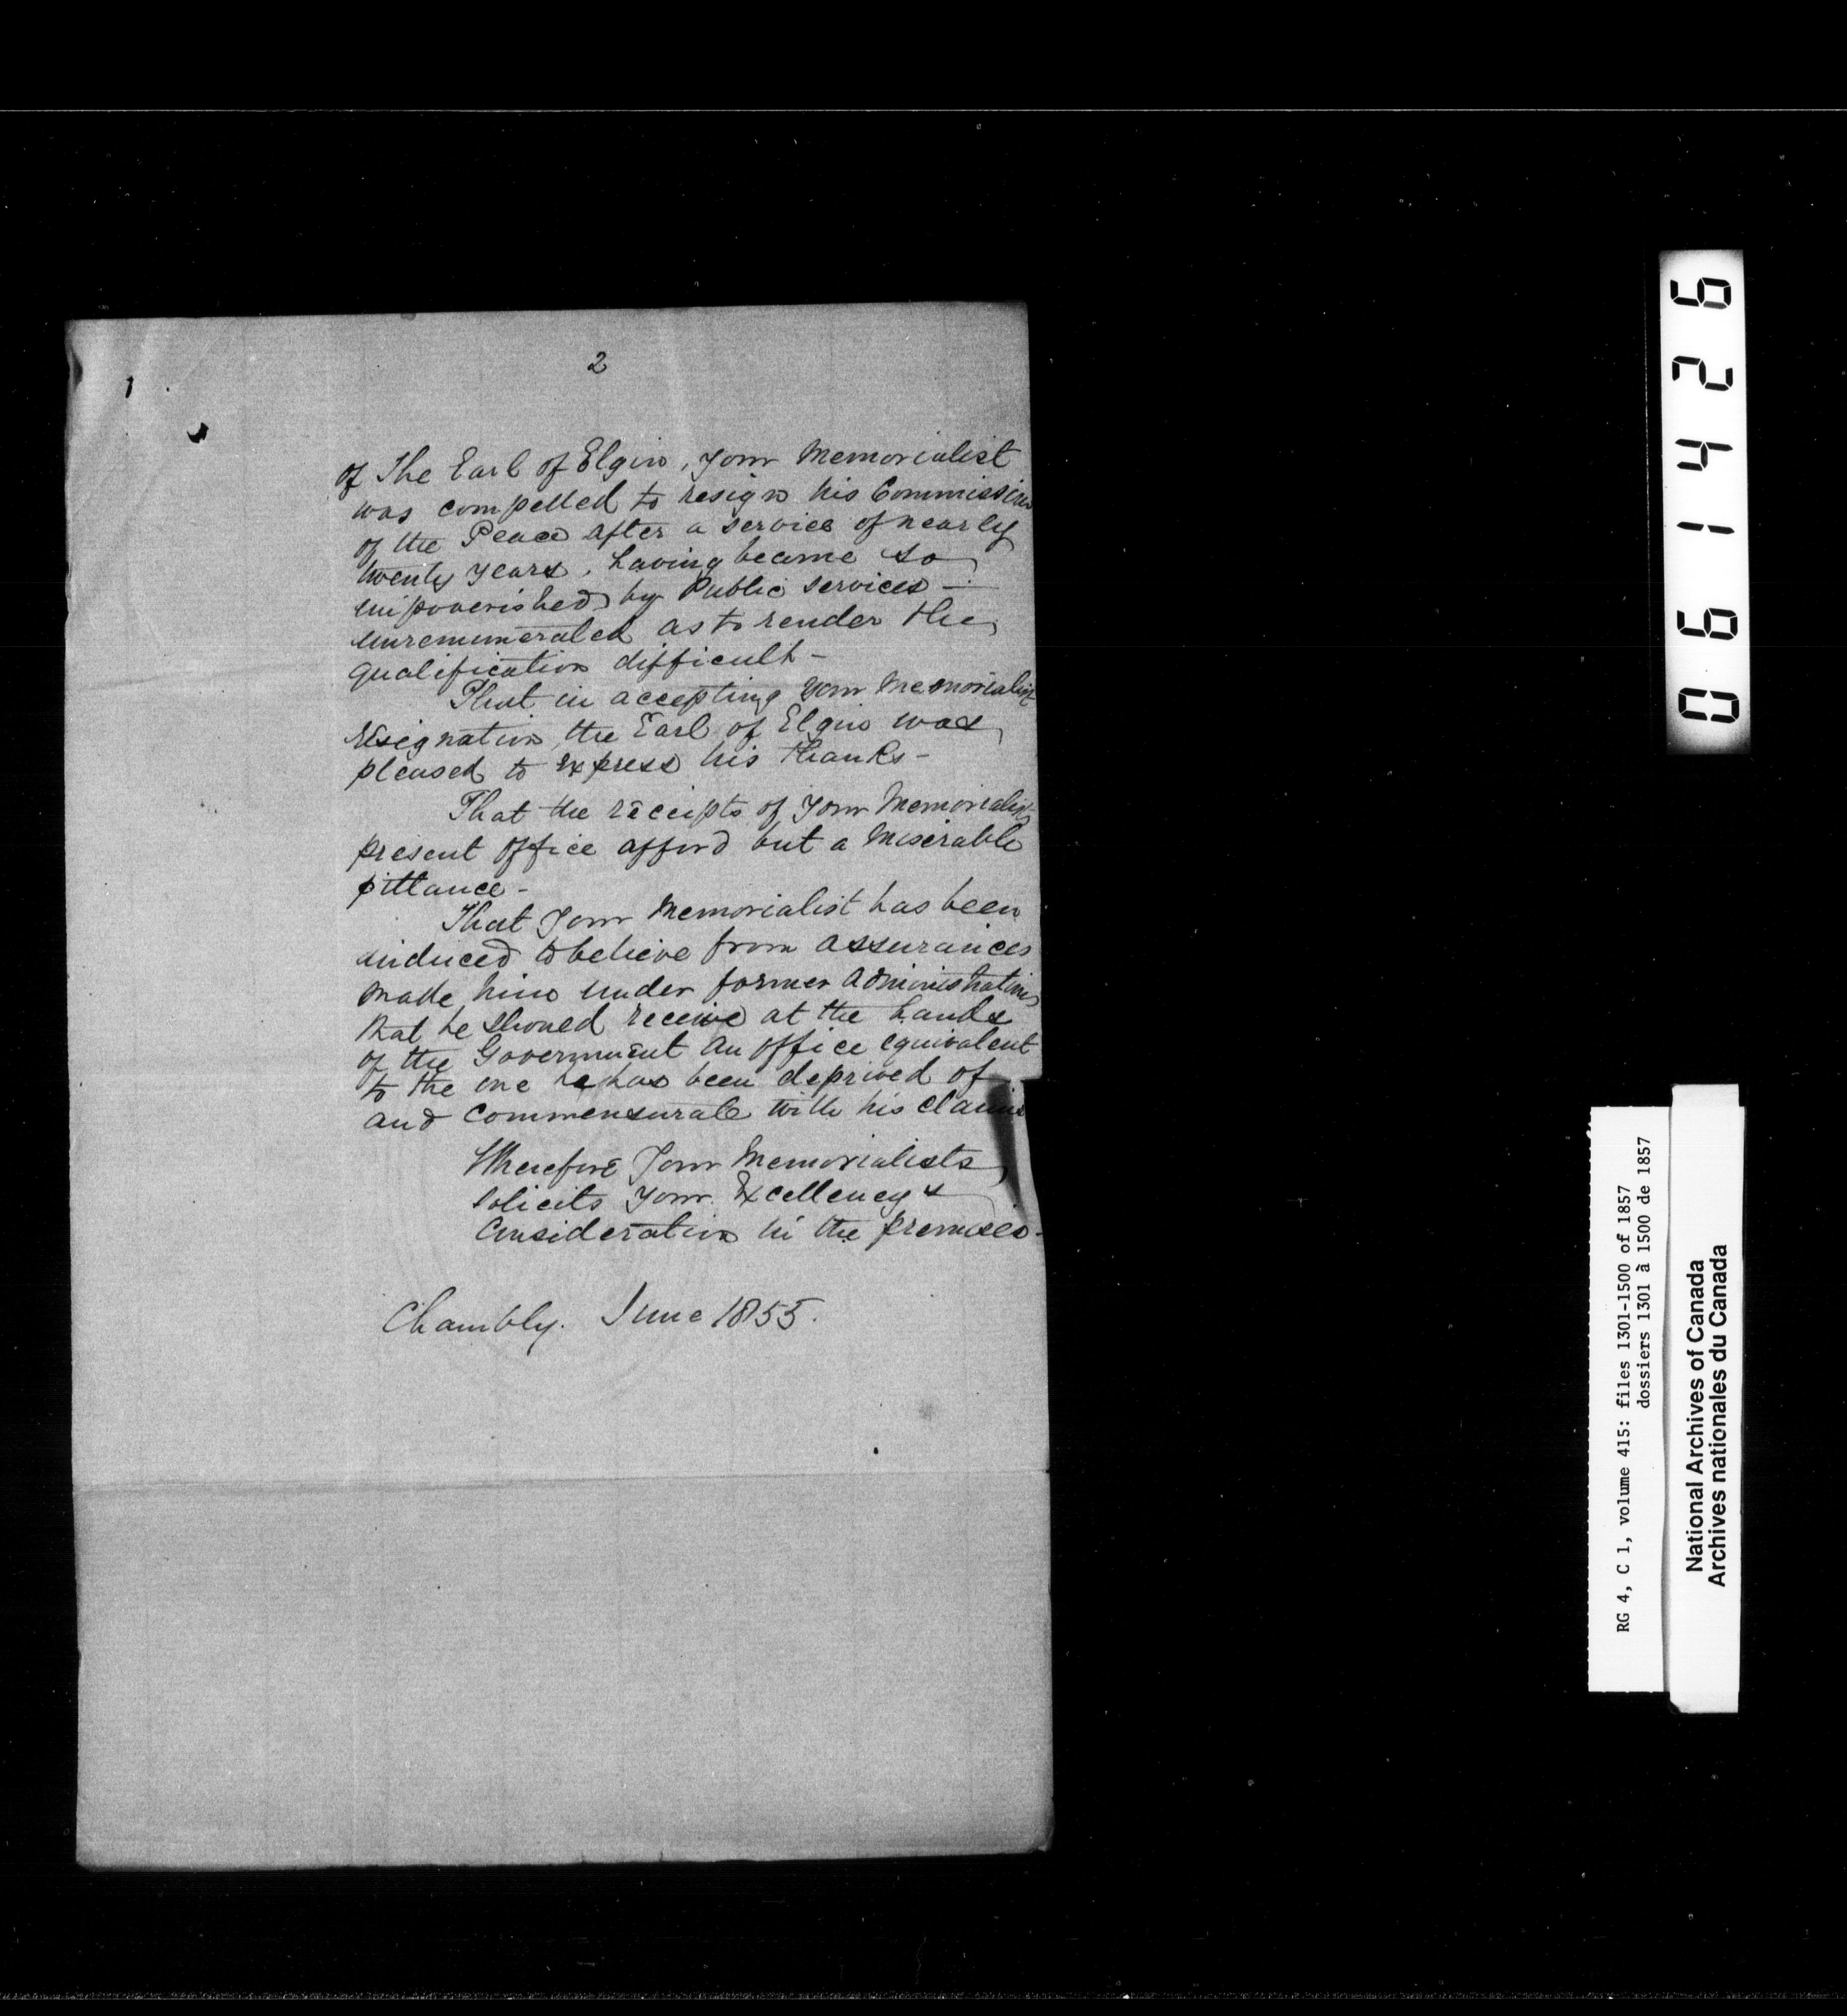 2
of The Earl of Elgin, your Memorialist
was compelled to resign his Commission
of the Peace after a service of nearly
twenty years, having became so
impoverished by Public services -
unremunerated as to render the
qualification difficult -
That in accepting your Memorialist
resignation, the Earl of Elgin was
pleased to express his thanks -
That the receipts of your Memorialist
present office afford but a miserable
pittance -
That Your Memorialist has been
induced to believe from assurances
made him under former Administrations
that he should receive at the hands
of the Government an office equivalent
to the one he has been deprived of
and commensurate with his claims
Wherefore Your Memorialists
solicits your Excellency's
consideration in the premises -
Chambly. June 1855.
061426
RG 4, C 1, volume 415: files 1301-1500 of 1857
dossiers 1301 à 1500 de 1857
National Archives of Canada
Archives nationales du Canada